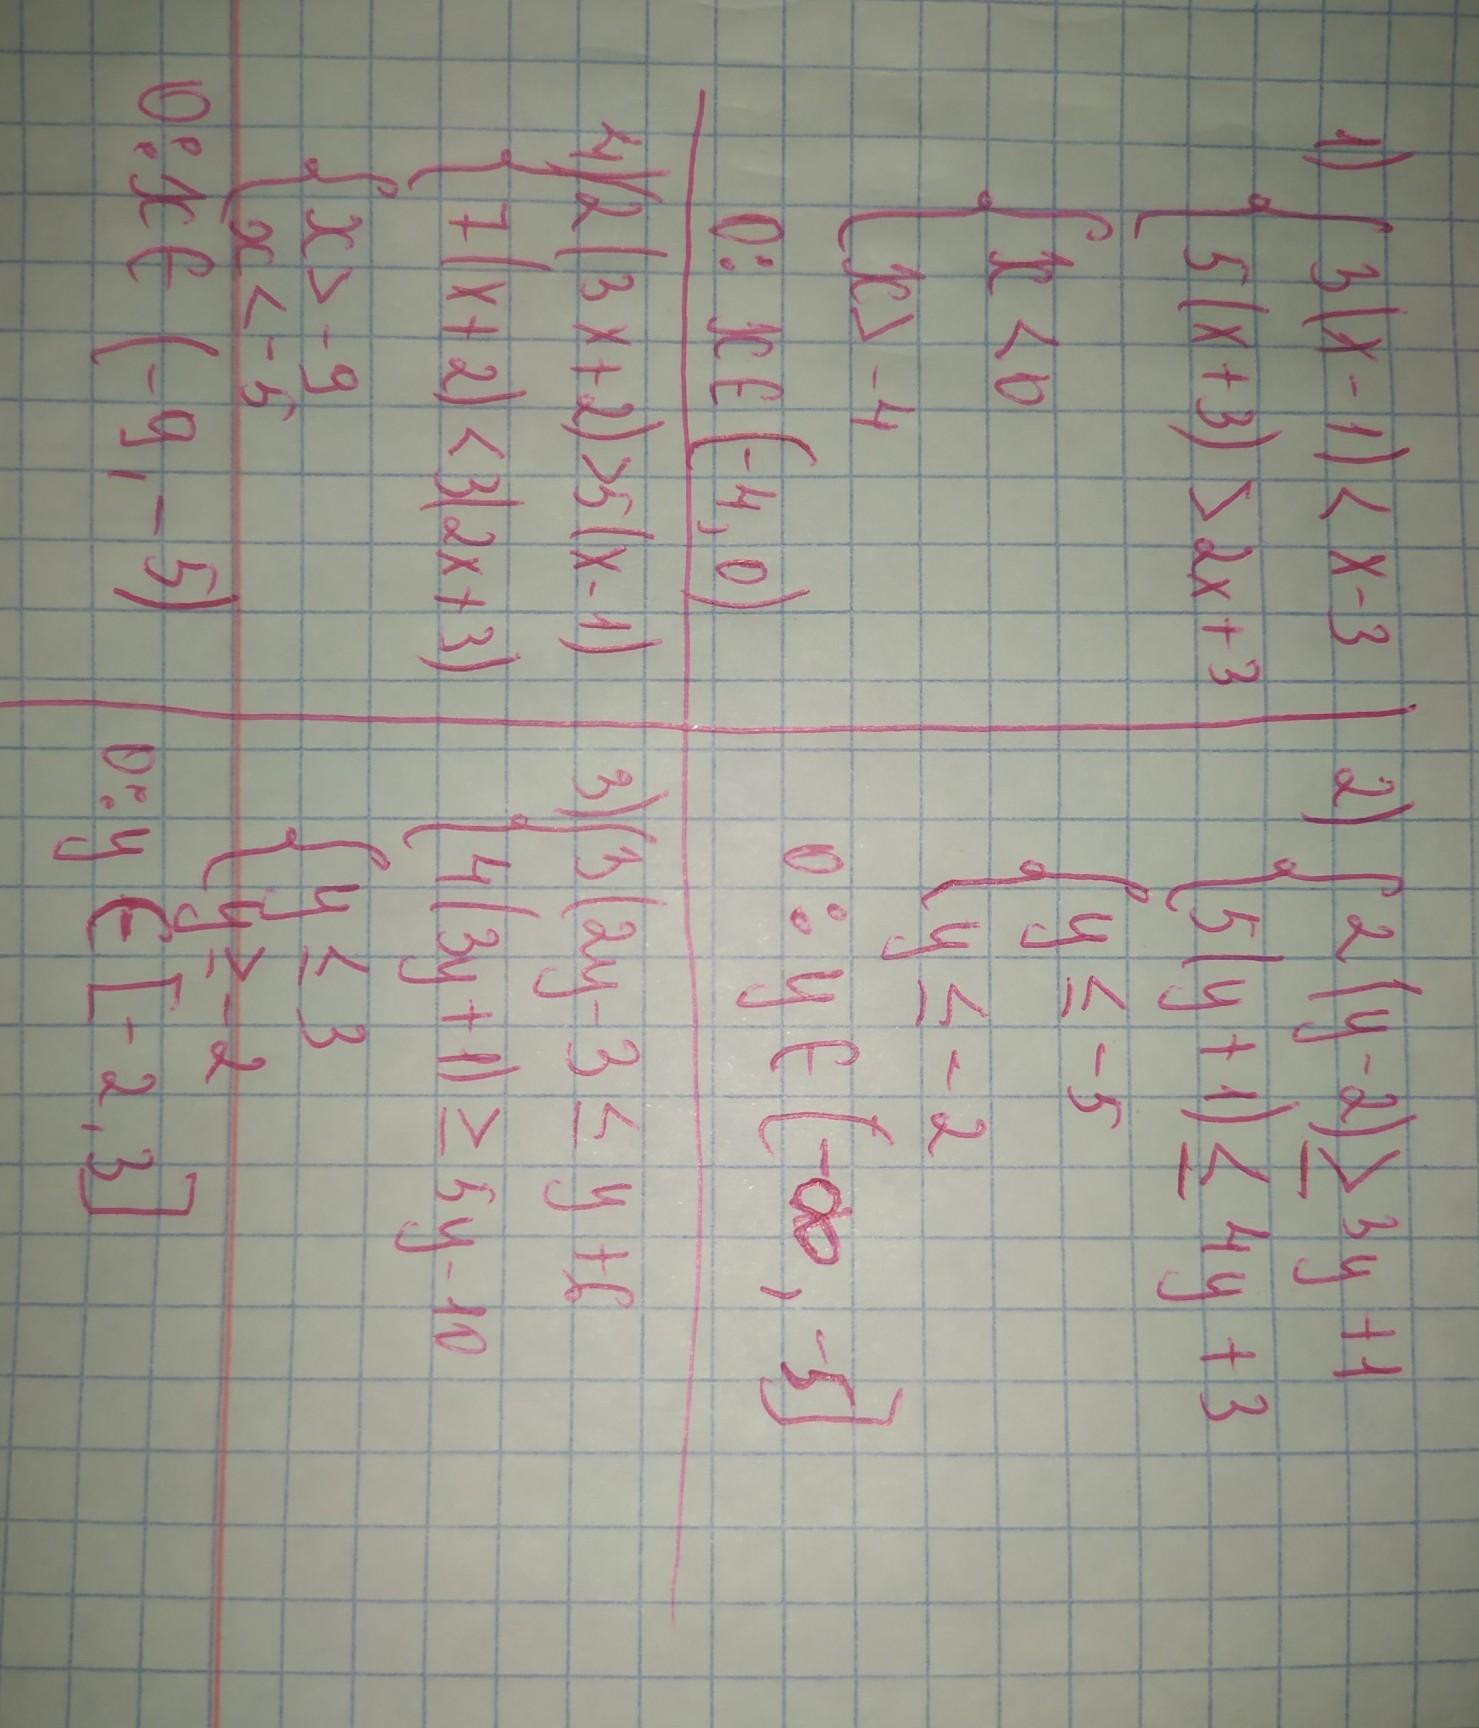 1) { 3(x-1) < x-3
5(x+3) > 2x+3
{ x < 0
x > -4
О: x ∈ (-4, 0)
2) { 2(y-2) ≥ 3y+1
5(y+1) ≤ 4y+3
{ y ≤ -5
y ≤ -2
О: y ∈ (-∞, -5]
4) { 2(3x+2) > 5(x-1)
7(x+2) < 3(2x+3)
{ x > -9
x < -5
О: x ∈ (-9, -5)
3) { 3(2y-3 ≤ y+6
4(3y+1) ≥ 5y-10
{ y ≤ 3
y ≥ -2
О: y ∈ [-2, 3]